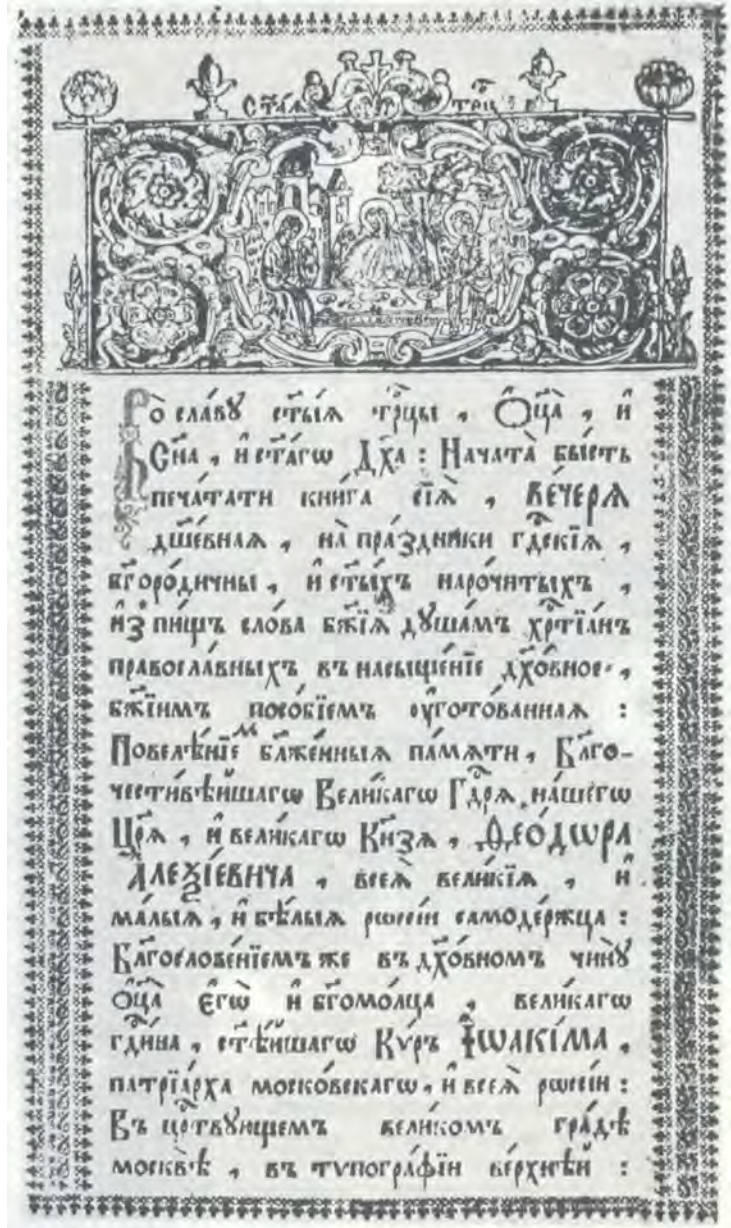 ст҃аѧ трⷪ҇ца
Во сла́вꙋ ст҃ы́ѧ трⷪ҇цы , Ѻ҆ц҃а̀ , и҆
Сн҃а , и҆ ст҃а́гѡ Дх҃а : Начата̀ бы́сть
печа́тати кни́га сїѧ̀ , ВЕ́ЧЕРѦ
дш҃е́внаѧ , на̀ пра́здники гдⷭ҇кїѧ ,
бг҃оро́дичны , и҆ ст҃ы́хъ наро́читыхъ ,
и҆з̾ пи́щъ сло́ва бж҃їѧ дꙋша́мъ хрⷭ҇тїа́нъ
правосла́вныхъ въ насыще́нїе дх҃о́вное ,
бж҃їимъ посо́бїемъ ᲂу҆гото́ваннаѧ :
Повелѣ́нїемⷨ блаже́нныѧ па́мѧти , Бл҃го-
чести́вѣйшагѡ Вели́кагѡ Гдⷭ҇рѧ на́шегѡ
Цр҃ѧ̀ , и҆ вели́кагѡ Кн҃зѧ , Ѳ҆ЕО́ДѠРА
А҆ЛЕѮІ́ЕВИЧА , всеѧ̀ вели́кїѧ , и҆
ма́лыѧ , и҆ бѣ́лыѧ рѡссі́и самоде́ржца :
Бл҃гослове́нїемъ же въ дх҃о́вномъ чи́нꙋ
Ѻ҆ц҃а̀ є҆гѡ̀ и҆ бг҃омо́лца , вели́кагѡ
гдⷭ҇и́на , ст҃ѣ́йшагѡ Кѵ́ръ І҆ѠАКІ́МА ,
патрїа́рха моско́вскагѡ , и҆ всеѧ̀ рѡссі́и :
Въ црⷭ҇твꙋющемъ вели́комъ гра́дѣ
москвѣ̀ , въ тѵпогра́фїи ве́рхнѣй :